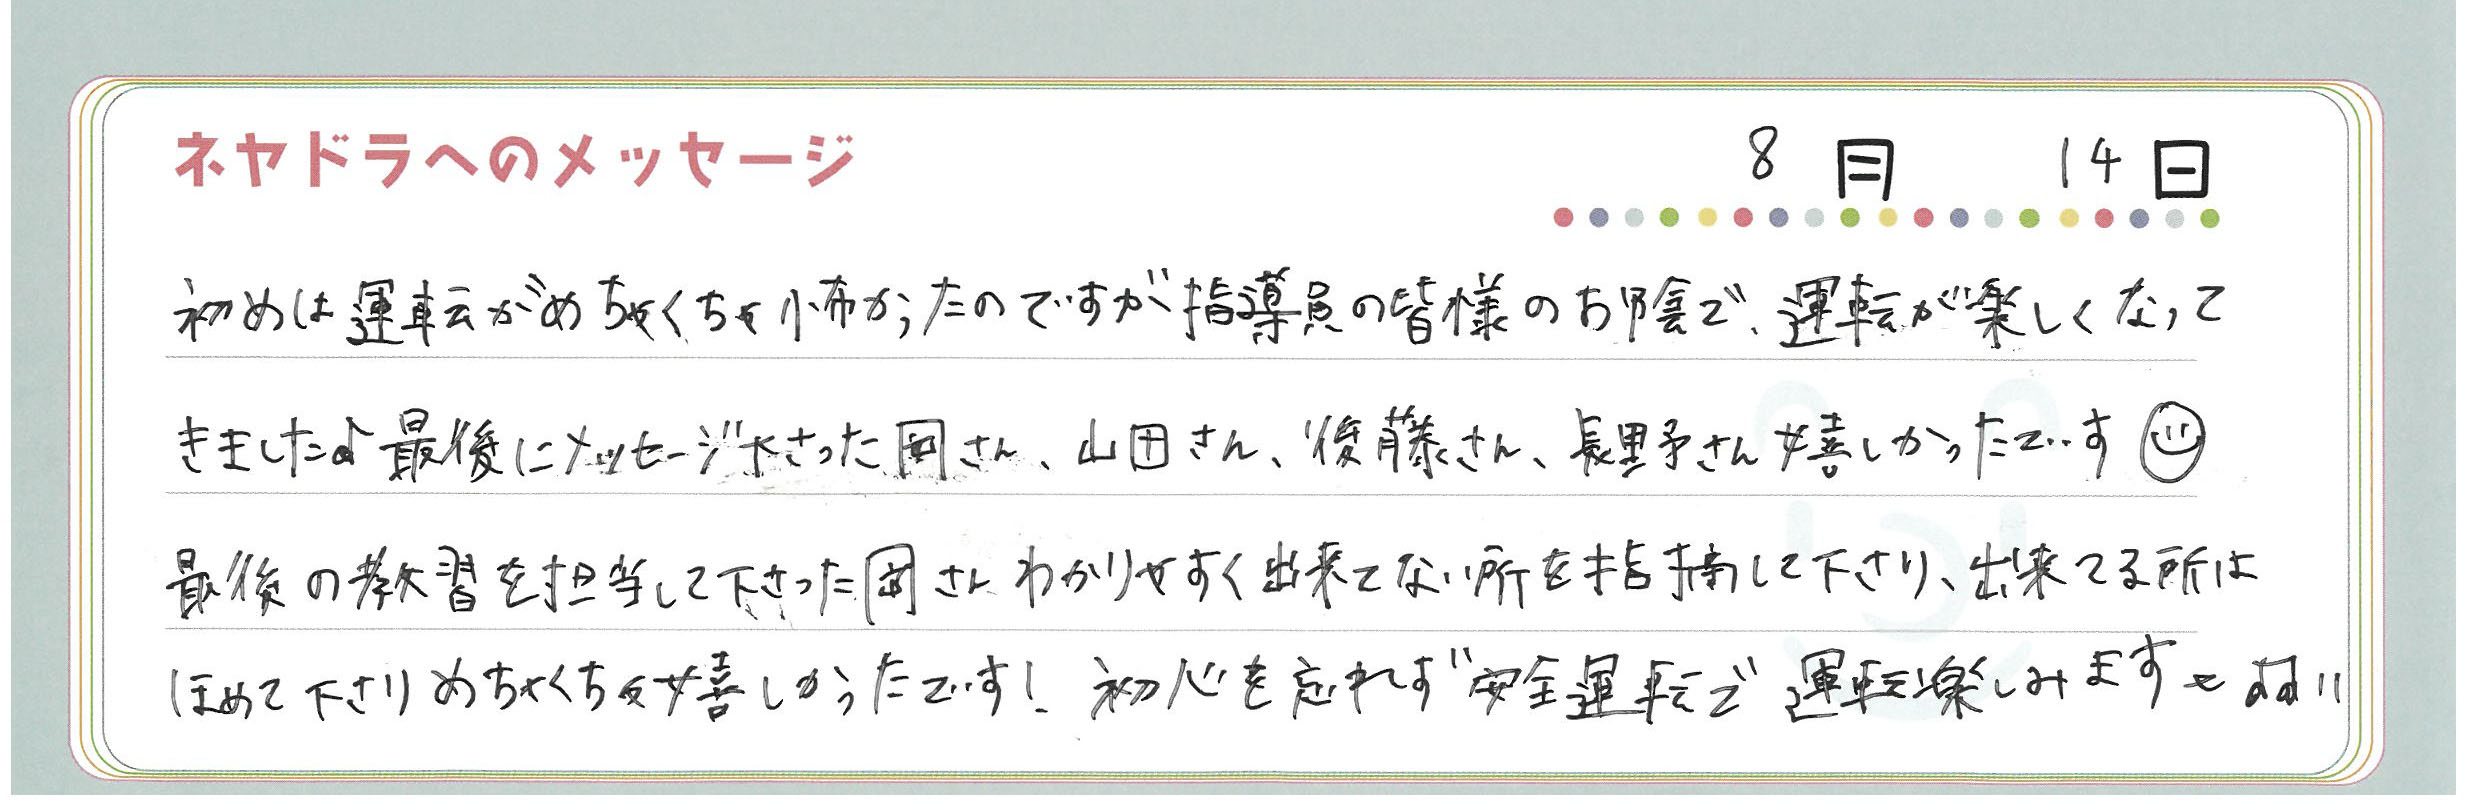 ネヤドラへのメッセージ
8月 14日
初めは運転がめちゃくちゃ怖かったのですが指導員の皆様のお陰で、運転が楽しくなって
きました♪最後にメッセージ下さった岡さん、山田さん、後藤さん、長野さん嬉しかったです☺
最後の教習を担当して下さった岡さんわかりやすく出来てない所を指摘して下さり、出来てる所は
ほめて下さりめちゃくちゃ嬉しかったです! 初心を忘れず安全運転で運転楽しみます〜♫!!